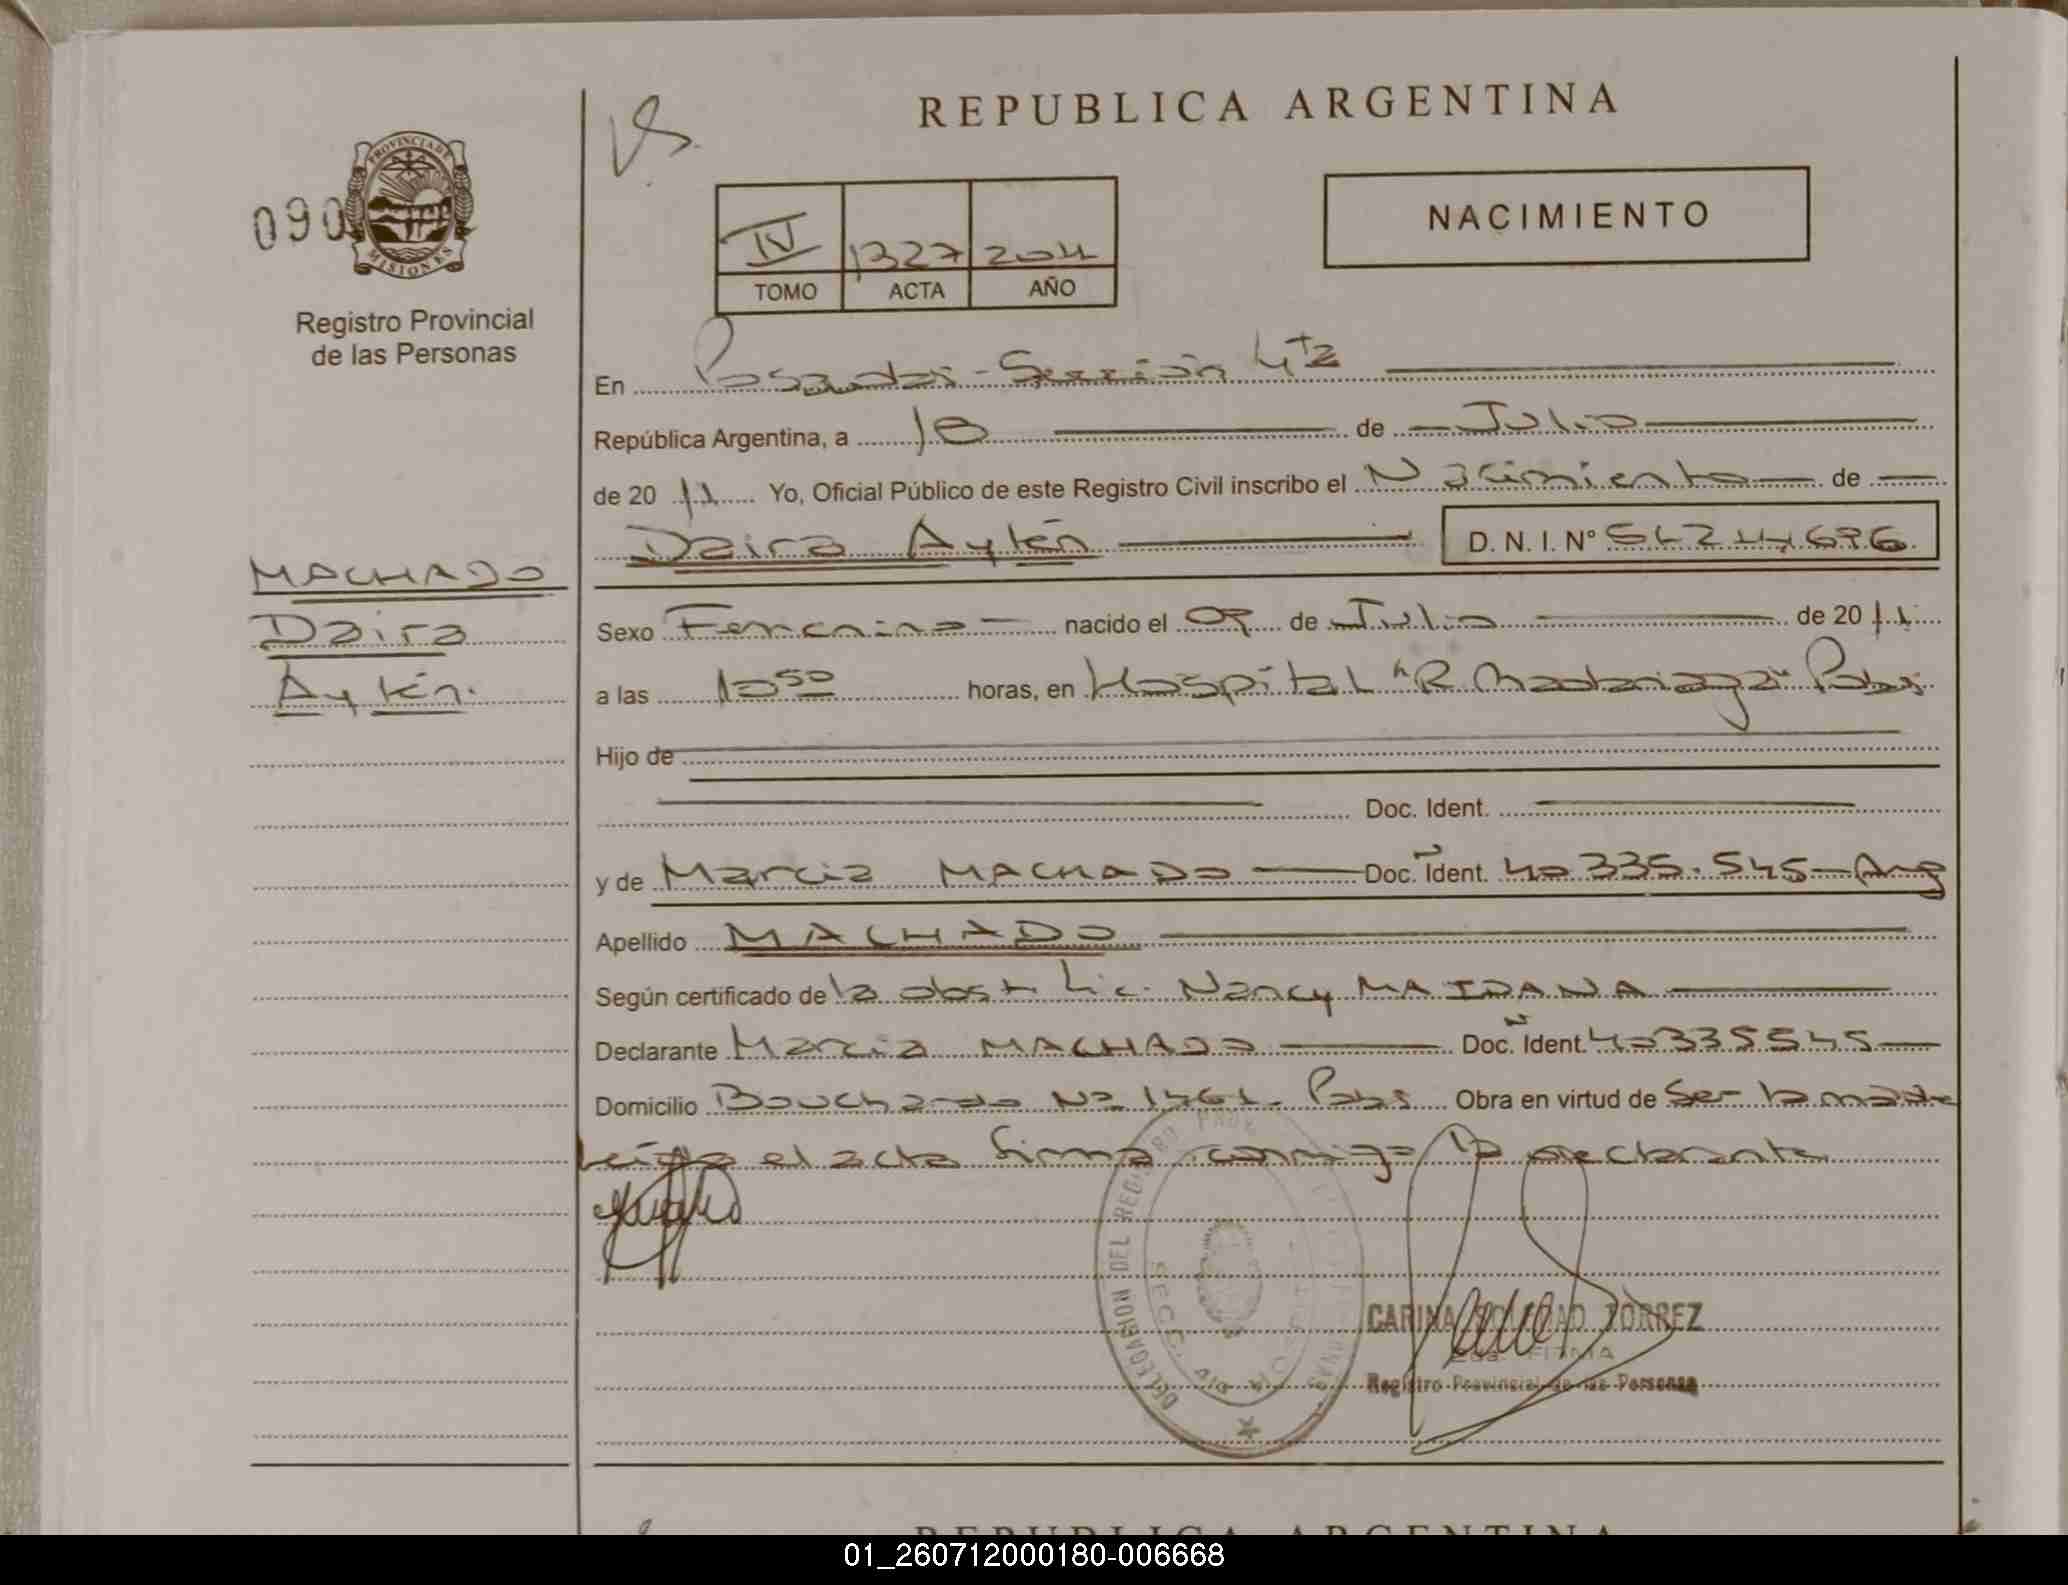 REPUBLICA ARGENTINA
NACIMIENTO
090
PROVINCIA DE
MISIONES
Registro Provincial
de las Personas
IV 1327 2011
TOMO ACTA AÑO
En Posadas - Sección 4ta
República Argentina, a 18 de Julio
de 20 11 Yo, Oficial Público de este Registro Civil inscribo el Nacimiento de
Daira Aylén D. N. I. N°
MACHADO
Daira
Aylén.
Sexo Femenino nacido el de Julio de 20 11
a las 10 50 horas, en Hospital "R. Madariaga" Pdas.
Hijo de
Doc. Ident.
y de Marcia MACHADO Doc. Ident. 40 335.545 - Arg
Apellido MACHADO
Según certificado de la obst. Lic. Nancy MAIDANA
Declarante Marcia MACHADO Doc. Ident. 40335545
Domicilio Bouchardo No 1461. Pdas Obra en virtud de Ser la madre
Leída el acta firma conmigo la declarante
DELEGACION DEL REGISTRO
SECC.
CARINA SOLEDAD TORREZ
2da. FIRMA
Registro Provincial de las Personas
REPUBLICA ARGENTINA
01_260712000180-006668